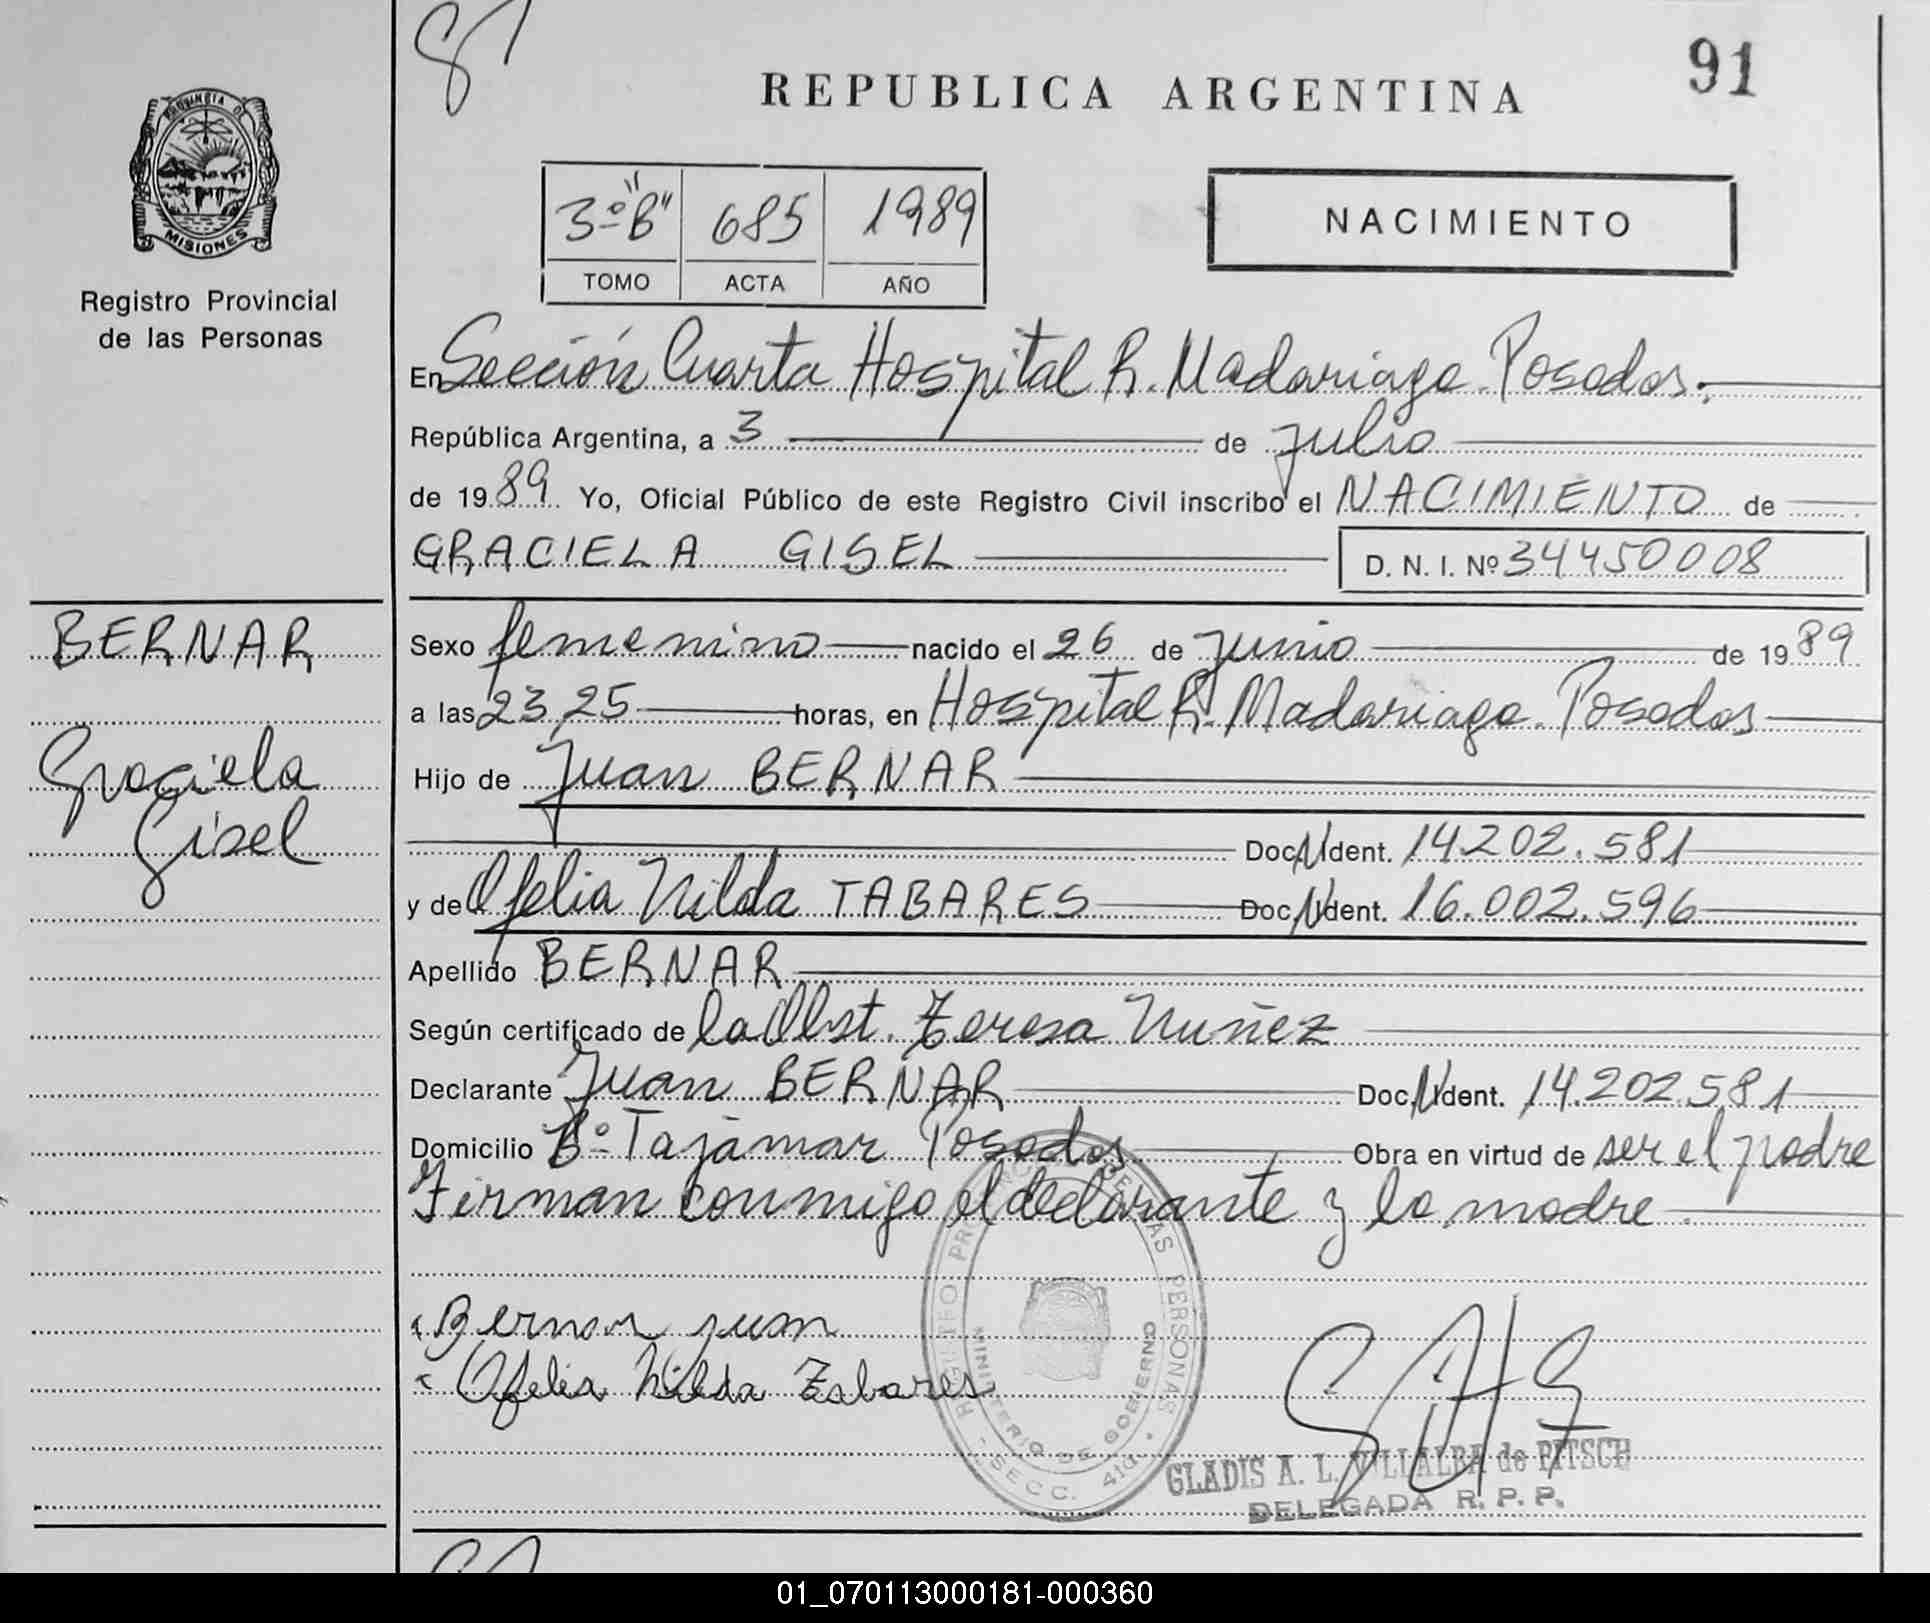 91
REPUBLICA ARGENTINA
PROVINCIA DE
MISIONES
Registro Provincial
de las Personas
3º "B" 685 1989
TOMO ACTA AÑO
NACIMIENTO
En Sección Cuarta Hospital R. Madariaga. Posadas.
República Argentina, a 3 de julio
de 1989. Yo, Oficial Público de este Registro Civil inscribo el NACIMIENTO de
GRACIELA GISEL D. N. I. Nº 34450008
BERNAR
Graciela
Gisel
Sexo femenino nacido el 26 de junio de 1989
a las 23,25 horas, en Hospital R. Madariaga. Posadas
Hijo de Juan BERNAR
Doc. Ident. 14.202.581
y de Ofelia Nilda TABARES Doc. Ident. 16.002.596
Apellido BERNAR
Según certificado de la Obst. Teresa Nuñez
Declarante Juan BERNAR Doc. Ident. 14.202.581
Domicilio Bº Tajamar Posadas Obra en virtud de ser el padre
Firman conmigo el declarante y la madre.
Bernar juan
Ofelia Nilda Tabares
REGISTRO PROVINCIAL DE LAS PERSONAS
MINISTERIO DE GOBIERNO
SECC. 4ta.
GLADIS A. L. VILLALBA de PITSCH
DELEGADA R. P. P.
01_070113000181-000360